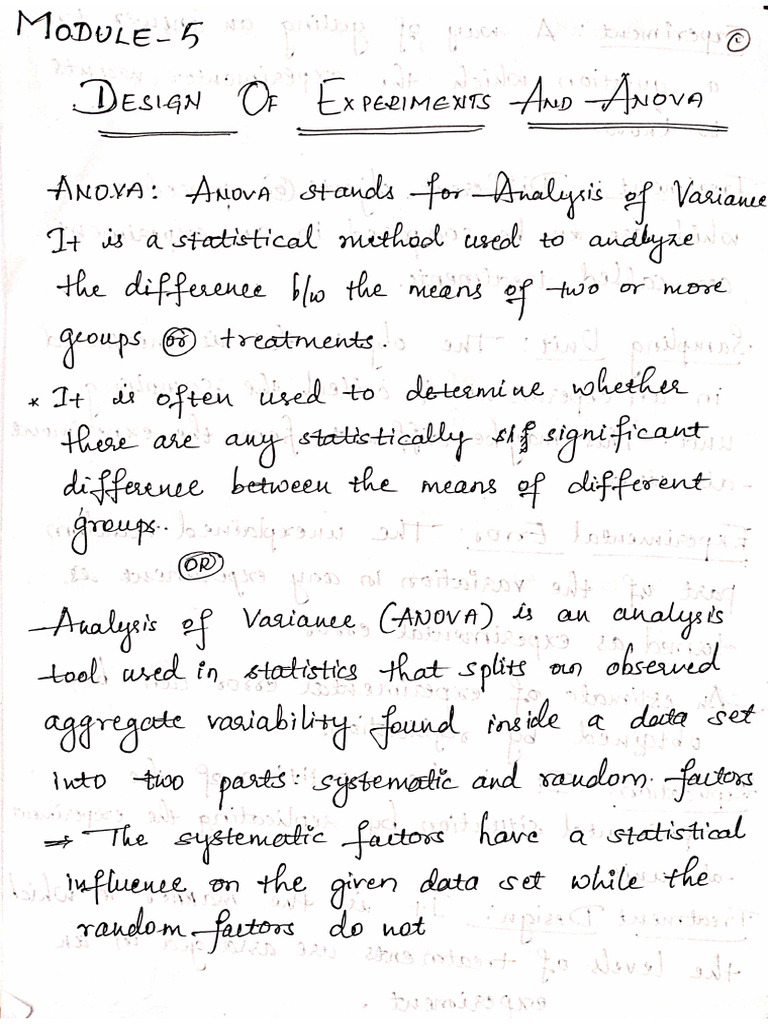 MODULE-5
DESIGN OF EXPERIMENTS AND ANOVA
ANOVA: ANOVA stands for Analysis of Variance
It is a statistical method used to analyze
the difference b/w the means of two or more
groups (or) treatments.
* It is often used to determine whether
there are any statistically sif significant
difference between the means of different
groups.
(OR)
Analysis of Variance (ANOVA) is an analysis
tool used in statistics that splits an observed
aggregate variability found inside a data set
into two parts: systematic and random factors
⇒ The systematic factors have a statistical
influence on the given data set while the
random factors do not